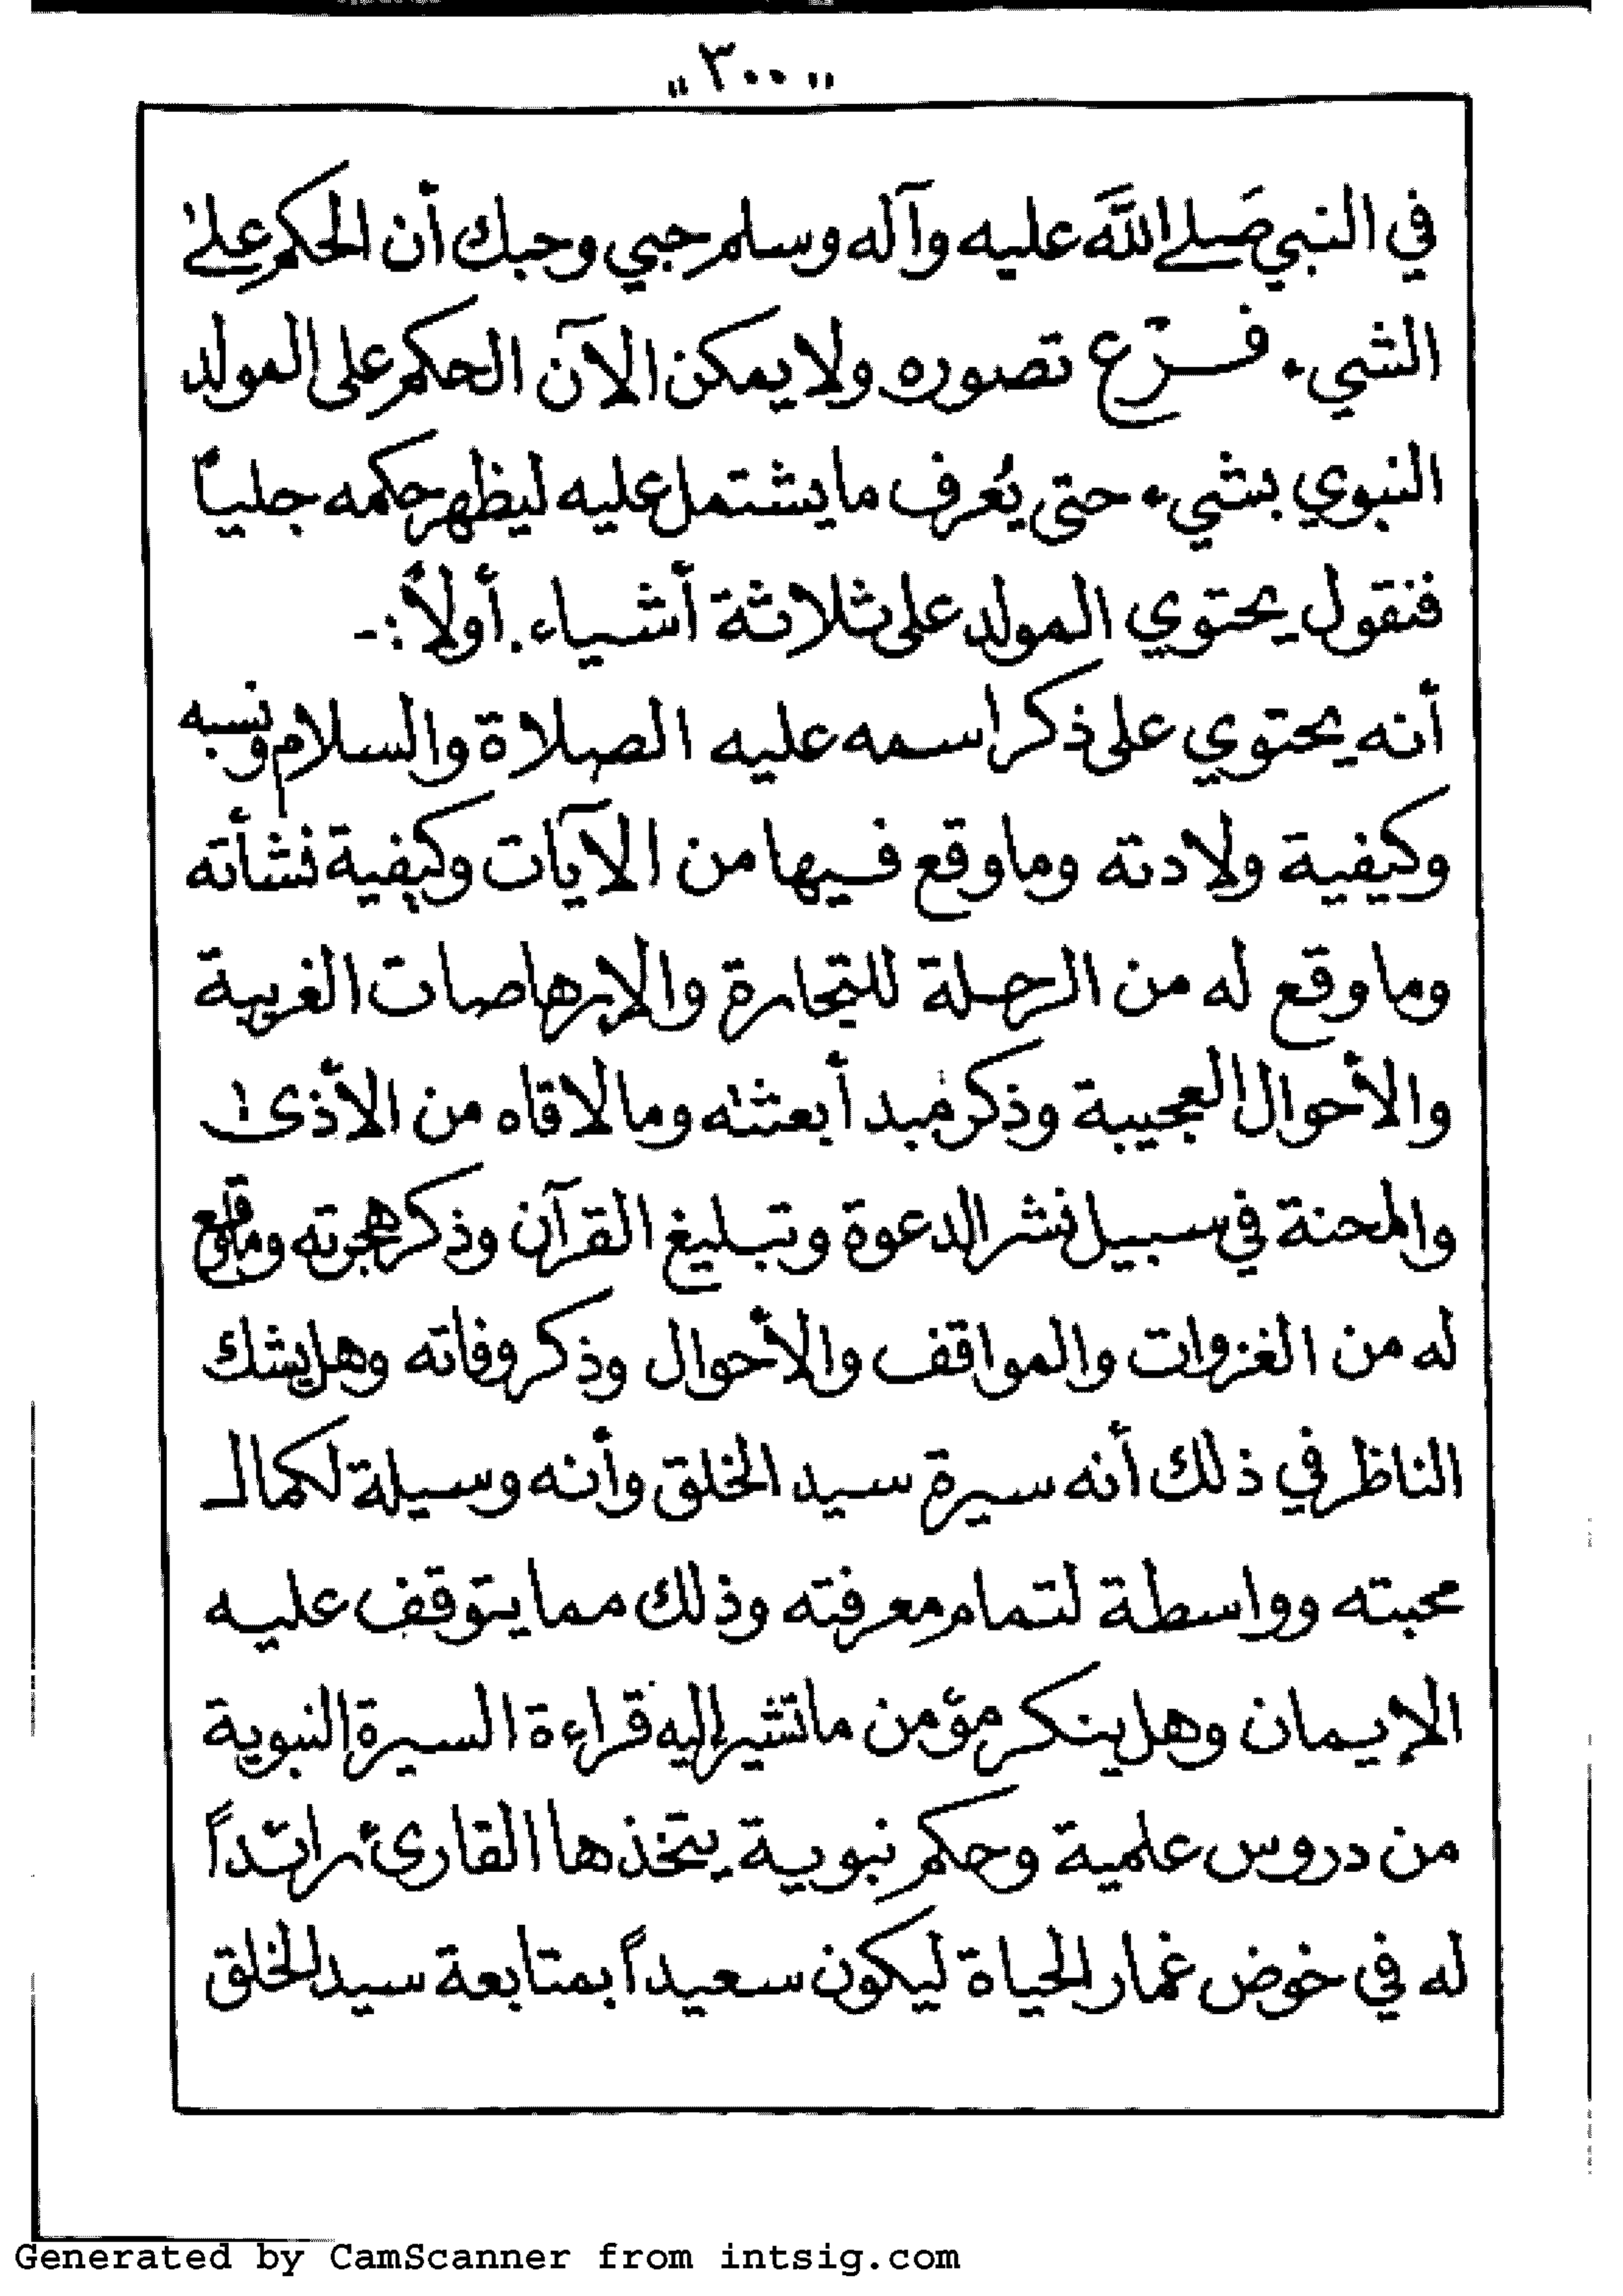 "٣٠٠"
في النبي صَلى اللَّه عليه وآله وسلم حبي وحبك أن الحكم على
الشيء فرع تصوره ولا يمكن الآن الحكم على المولد
النبوي بشيء حتى يُعرف ما يشتمل عليه ليظهر حكمه جلياً
فنقول يحتوي المولد على ثلاثة أشياء. أولاً :-
أنه يحتوي على ذكر اسمه عليه الصلاة والسلام ونسبه
وكيفية ولادته وما وقع فيها من الآيات وكيفية نشأته
وما وقع له من الرحلة للتجارة والإرهاصات الغريبة
والأحوال العجيبة وذكر مبدأ بعثته وما لاقاه من الأذى
والمحنة في سبيل نشر الدعوة وتبليغ القرآن وذكر هجرته وما وقع
له من الغزوات والمواقف والأحوال وذكر وفاته وهل يشك
الناظر في ذلك أنه سيرة سيد الخلق وأنه وسيلة لكمال
محبته وواسطة لتمام معرفته وذلك مما يتوقف عليه
الإيمان وهل ينكر مؤمن ما تشير إليه قراءة السيرة النبوية
من دروس علمية وحكم نبوية يتخذها القارىء رائداً
له في خوض غمار الحياة ليكون سعيداً بمتابعة سيد الخلق
Generated by CamScanner from intsig.com